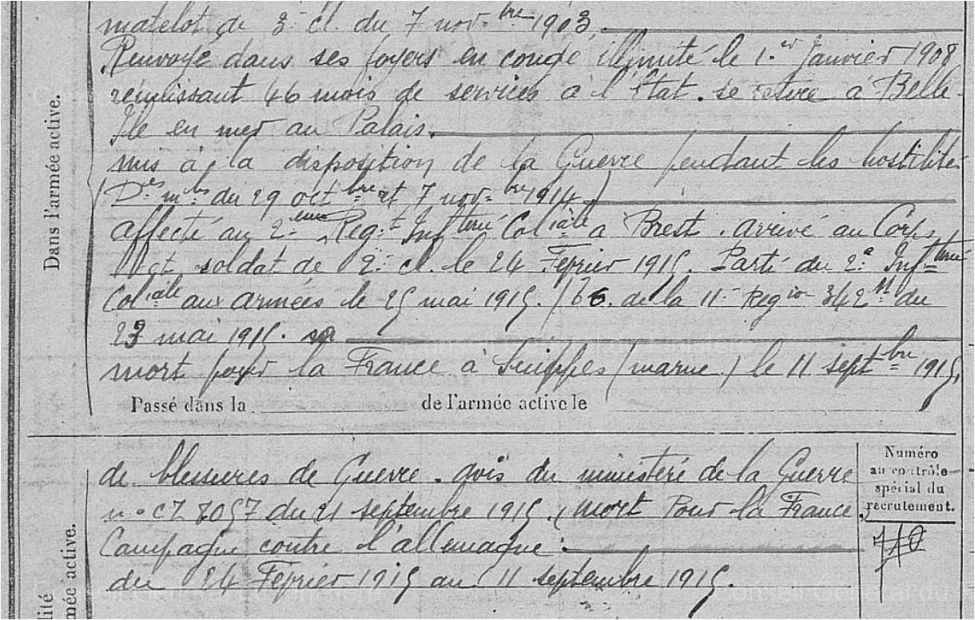 matelot de 3e cl. du 7 nov.bre 1903,
Renvoyé dans ses foyers en congé illimité le 1.er Janvier 1908
réunissant 46 mois de services à l'État. se retire à Belle
Ile en mer au Palais.
mis à la disposition de la Guerre pendant les hostilités
(D.es m.les du 29 oct.bre et 7 nov.bre 1914)
affecté au 2.eme Reg.t Inf.terie Col.iale à Brest. arrivé au Corps
soldat de 2e cl. le 24 Février 1915. Parti du 2e Inf.terie
Col.iale aux armées le 25 mai 1915. de la 11e Region 342 M du
23 mai 1915.
mort pour la France à Suippes (marne) le 11 sept.bre 1915,
Passé dans la de l'armée active le
de blessures de Guerre. avis du ministère de la Guerre
n° C7 7057 du 21 septembre 1915, (mort Pour la France,
Campagne contre l'allemagne:
du 24 Février 1915 au 11 septembre 1915.
Dans l'armée active.
ité
mée active.
Numéro
au contrôle
spécial du
recrutement.